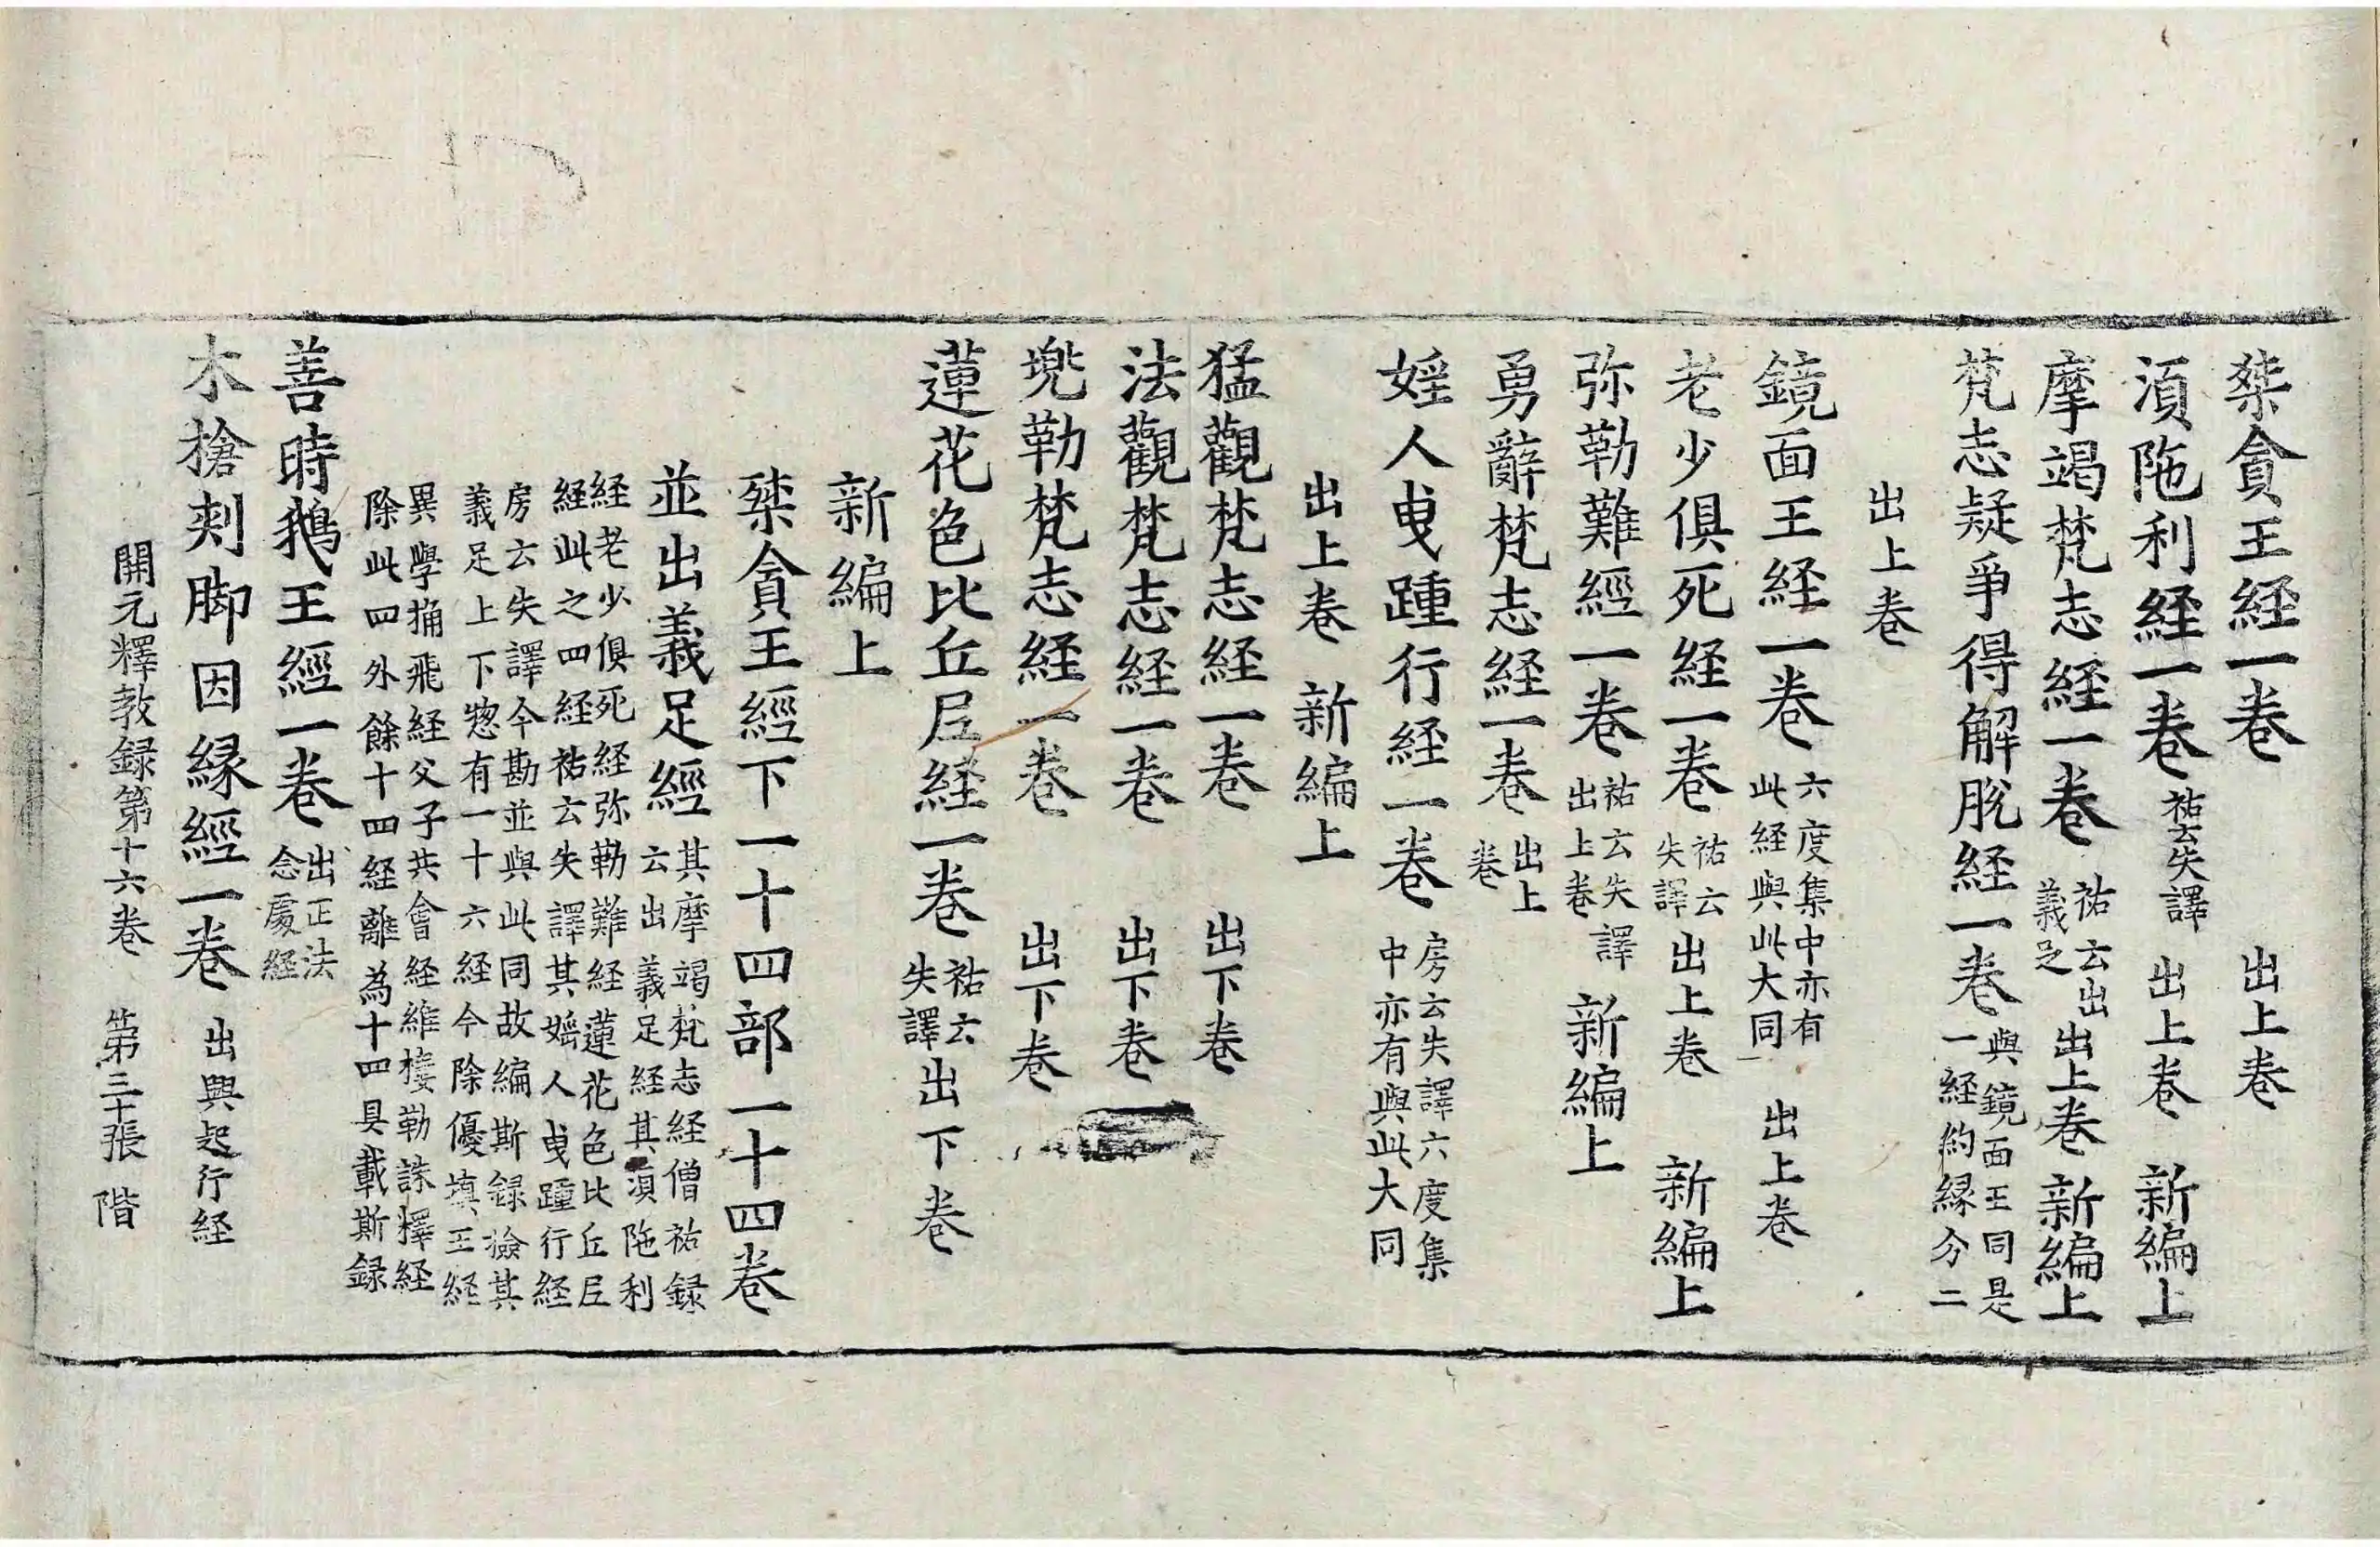 桀貪王経一巻 出上巻
湏陁利経一巻 祐云失譯 出上巻 新編上
摩竭梵志経一巻 祐云出義足 出上巻 新編上
梵志疑爭得解脫経一巻 與鏡面王同是一経約縁分二
出上巻
鏡面王経一巻 六度集中亦有此経與此大同 出上巻
老少俱死経一巻 祐云失譯 出上巻 新編上
弥勒難經一巻 祐云失譯出上巻 新編上
勇辭梵志経一巻 出上巻
婬人曳踵行経一巻 房云失譯六度集中亦有與此大同
出上巻 新編上
猛觀梵志経一巻 出下巻
法觀梵志経一巻 出下巻
兠勒梵志経一巻 出下巻
蓮花色比丘尼経一巻 祐云失譯 出下巻
新編上
桀貪王經下一十四部一十四巻
並出義足經 其摩竭梵志経僧祐録云出義足経其湏陁利
経老少俱死経弥勒難経蓮花色比丘尼経此之四経祐云失譯其婬人曳踵行経
房云失譯今勘並與此同故編斯録撿其義足上下惣有一十六経今除優填王経
異學捔飛経父子共會経維樓勒誅釋経除此四外餘十四経離為十四具載斯録
善時鵝王經一巻 出正法念處経
木槍刾脚因縁經一巻 出興起行経
開元釋教録第十六巻 第三十張 階